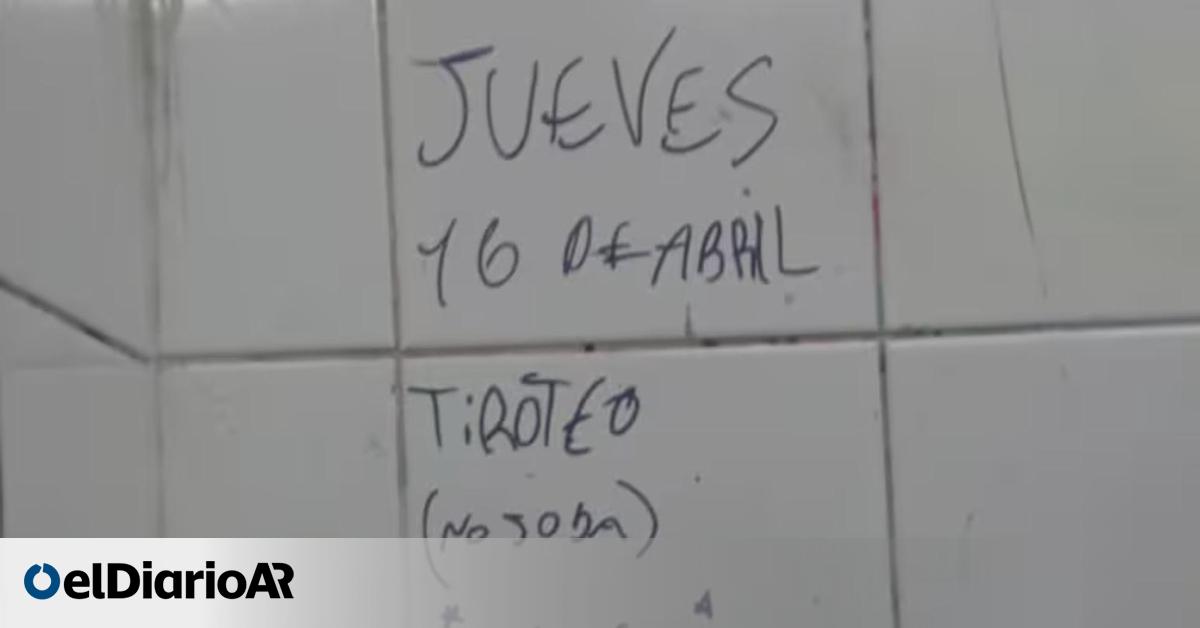 JUEVES
16 DE ABRIL
TiROTEO
(No JODA)
elDiarioAR